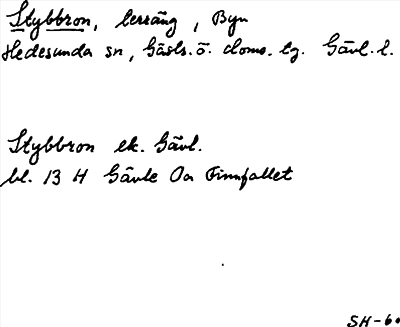 Stybbron, terräng, Byn
Hedesunda sn, Gästr. ö. doms. tg. Gävl. l.
Stybbron ek. Gävl.
bl. 13 H Gävle Oa Finnfallet
SH-60